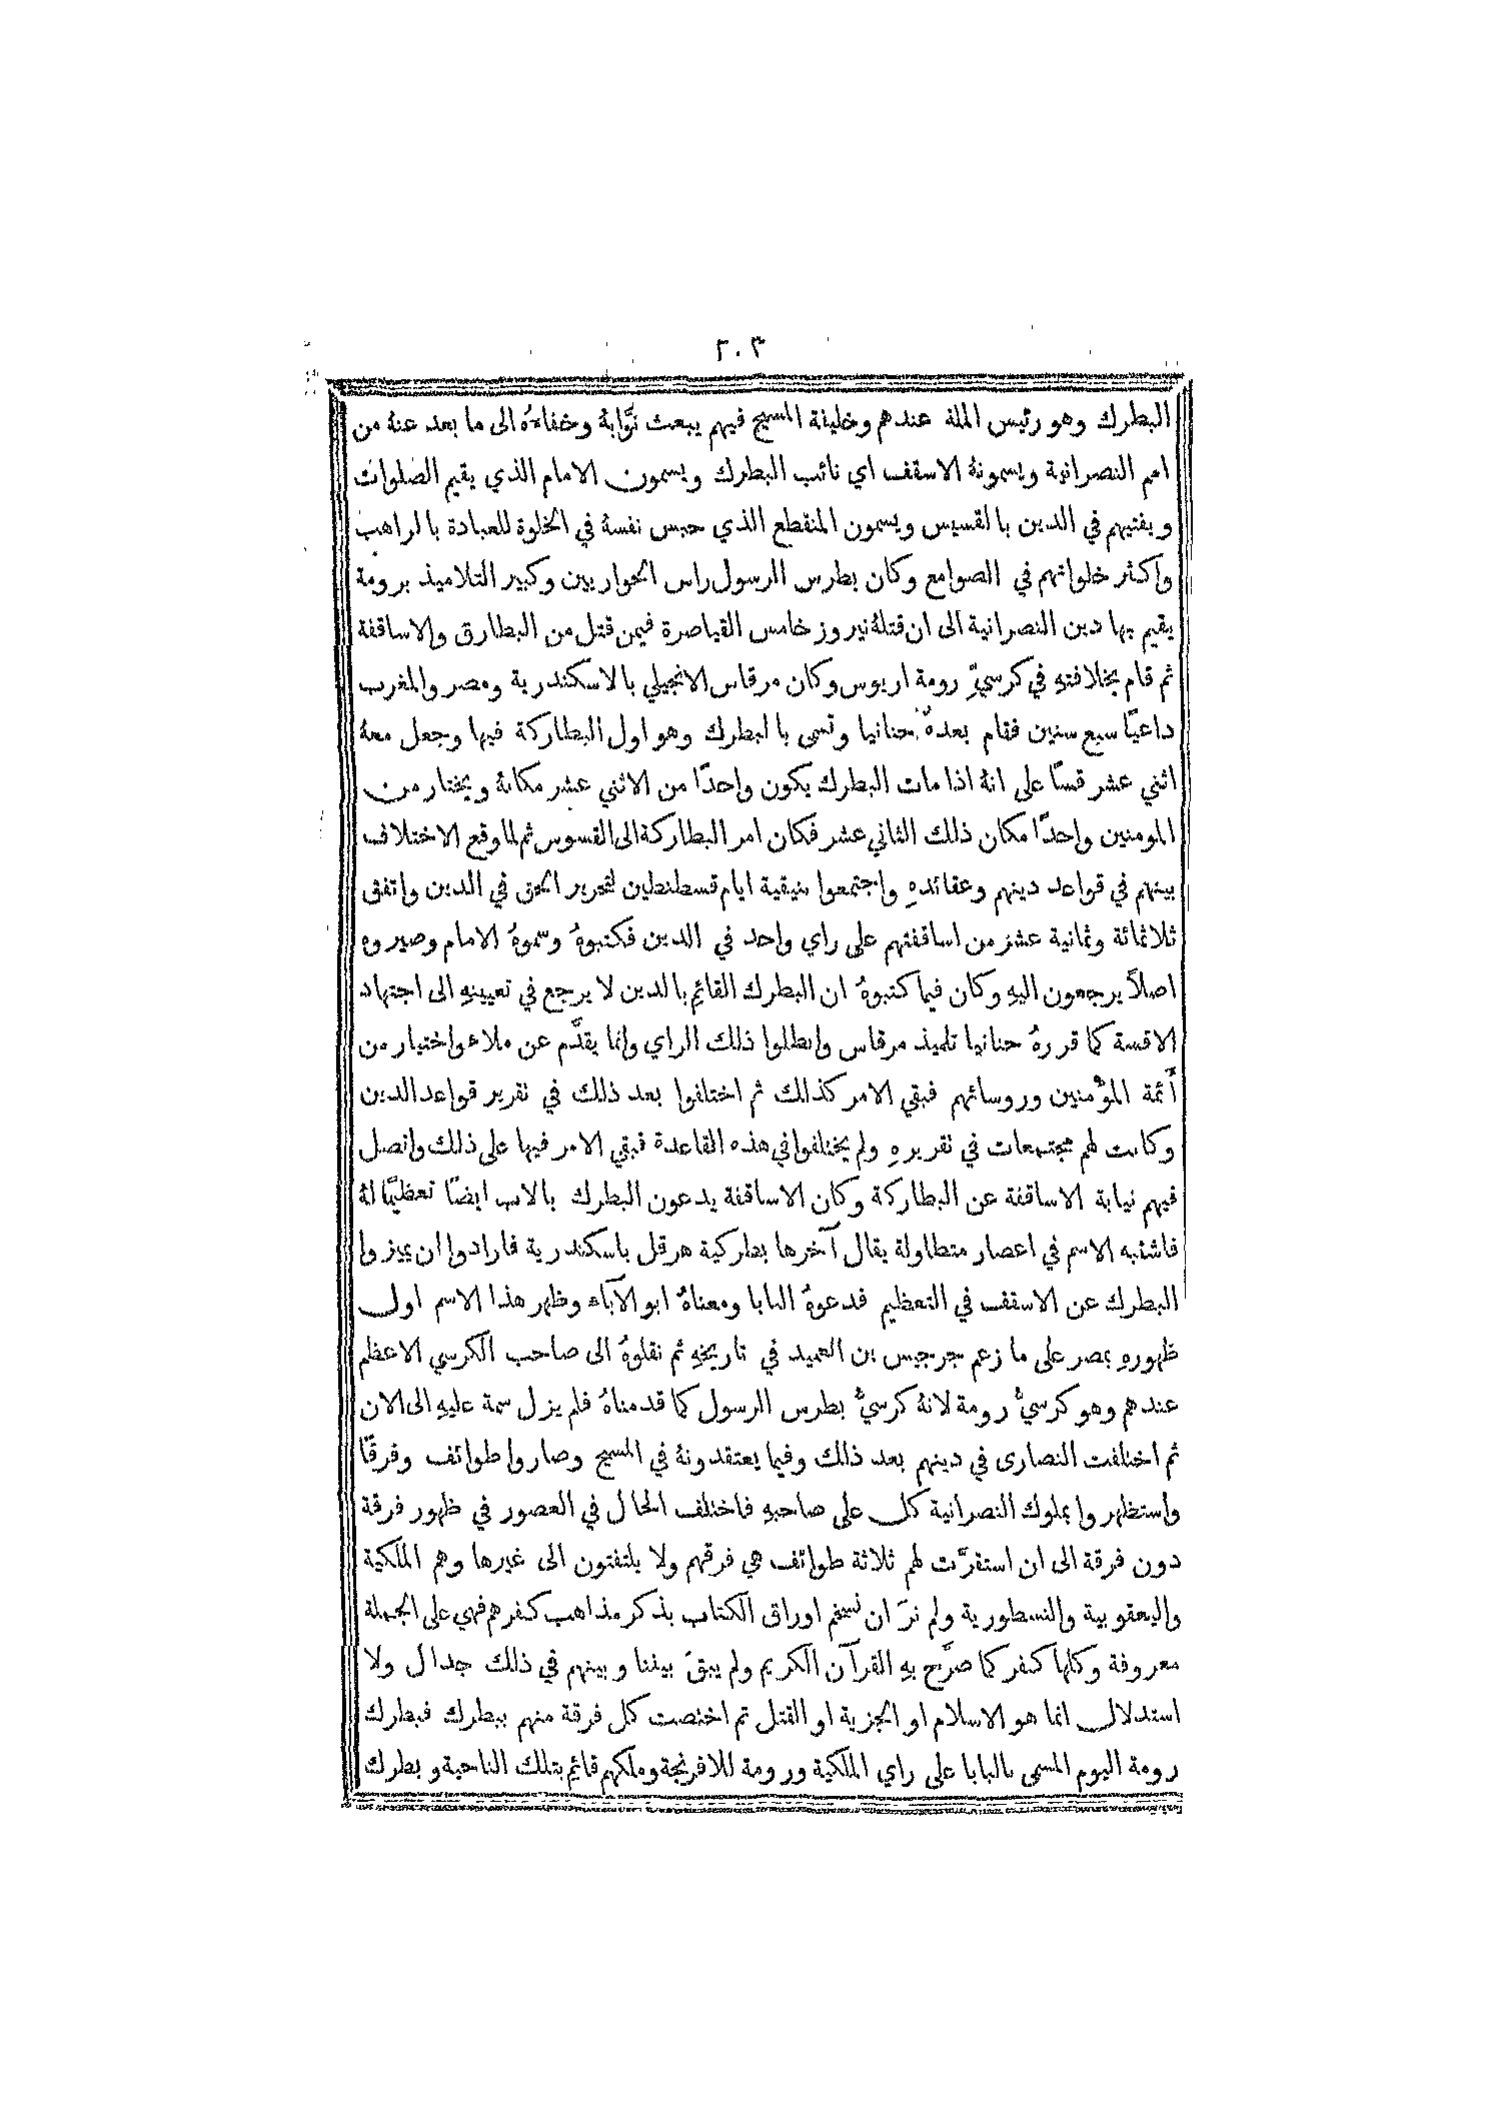 ٢٠٣
البطرك وهو رئيس الملة عندهم وخليفة المسيح فيهم يبعث نوَّابهُ وخلفاءهُ الى ما بعد عنهُ من
امم النصرانية ويسمونهُ الاسقف اي نائب البطرك ويسمون الامام الذي يقيم الصَلوات
ويفتيهم في الدين بالقسيس ويسمون المنقطع الذي حبس نفسهُ في الخلوة للعبادة بالراهب
واكثر خلواتهم في الصوامع وكان بطرس الرسول راس الحواريين وكبير التلاميذ برومة
يقيم بها دين النصرانية الى ان قتلهُ نيروز خامس القياصرة فيمن قتل من البطارق والاساقفة
ثم قام بخلافتهِ في كرسيِّ رومة اريوس وكان مرقاس الانجيلي بالاسكندرية ومصر والمغرب
داعيًا سبع سنين فقام بعدهُ حنانيا وتسمى بالبطرك وهو اول البطاركة فيها وجعل معهُ
اثني عشر قسًا على انهُ اذا مات البطرك يكون واحدًا من الاثني عشر مكانهُ ويختار من
المومنين واحدًا مكان ذلك الثاني عشر فكان امر البطاركة الى القسوس ثم لما وقع الاختلاف
بينهم في قواعد دينهم وعقائدهِ واجتمعوا بنيقية ايام قسطنطين لتحرير الحق في الدين واتفق
ثلاثمائة وثمانية عشر من اساقفتهم على راي واحد في الدين فكتبوهُ وسموهُ الامام وصيروه
اصلاً يرجعون اليهِ وكان فيما كتبوهُ ان البطرك القائم بالدين لا يرجع في تعيينهِ الى اجتهاد
الاقسة كما قررهُ حنانيا تلميذ مرقاس وابطلوا ذلك الراي وانما يقدَّم عن ملاء واختيار من
أَئمة المؤْمنين وروسائهم فبقي الامر كذلك ثم اختلفوا بعد ذلك في تقرير قواعد الدين
وكانت لهم مجتمعات في تقريرهِ ولم يختلفوا في هذه القاعدة فبقي الامر فيها على ذلك واتصل
فيهم نيابة الاساقفة عن البطاركة وكان الاساقفة يدعون البطرك بالاب ايضًا تعظيمًا لهُ
فاشتبه الاسم في اعصار متطاولة يقال آخرها بطركية هرقل باسكندرية فارادوا ان يميزوا
البطرك عن الاسقف في التعظيم فدعوهُ البابا ومعناهُ ابو الآباء وظهر هذا الاسم اول
ظهورهِ بمصر على ما زعم جرجيس بن العميد في تاريخهِ ثم نقلوهُ الى صاحب الكرسي الاعظم
عندهم وهو كرسيُّ رومة لانهُ كرسيُّ بطرس الرسول كما قدمناهُ فلم يزل سمة عليهِ الى الان
ثم اختلفت النصارى في دينهم بعد ذلك وفيما يعتقدونهُ في المسيح وصاروا طوائف وفرقًا
واستظهروا بملوك النصرانية كل على صاحبهِ فاختلف الحال في العصور في ظهور فرقة
دون فرقة الى ان استقرَّت لهم ثلاثة طوائف هي فرقهم ولا يلتفتون الى غيرها وهم الملكية
واليعقوبية والنسطورية ولم نرَ ان نسخم اوراق الكتاب بذكر مذاهب كفرهم فهي على الجملة
معروفة وكلها كفر كما صرَّح بهِ القرآن الكريم ولم يبقَ بيننا وبينهم في ذلك جدال ولا
استدلال انما هو الاسلام او الجزية او القتل ثم اختصت كل فرقة منهم ببطرك فبطرك
رومة اليوم المسمى بالبابا على راي الملكية ورومة للافرنجة وملكهم قائم بتلك الناحية وبطرك